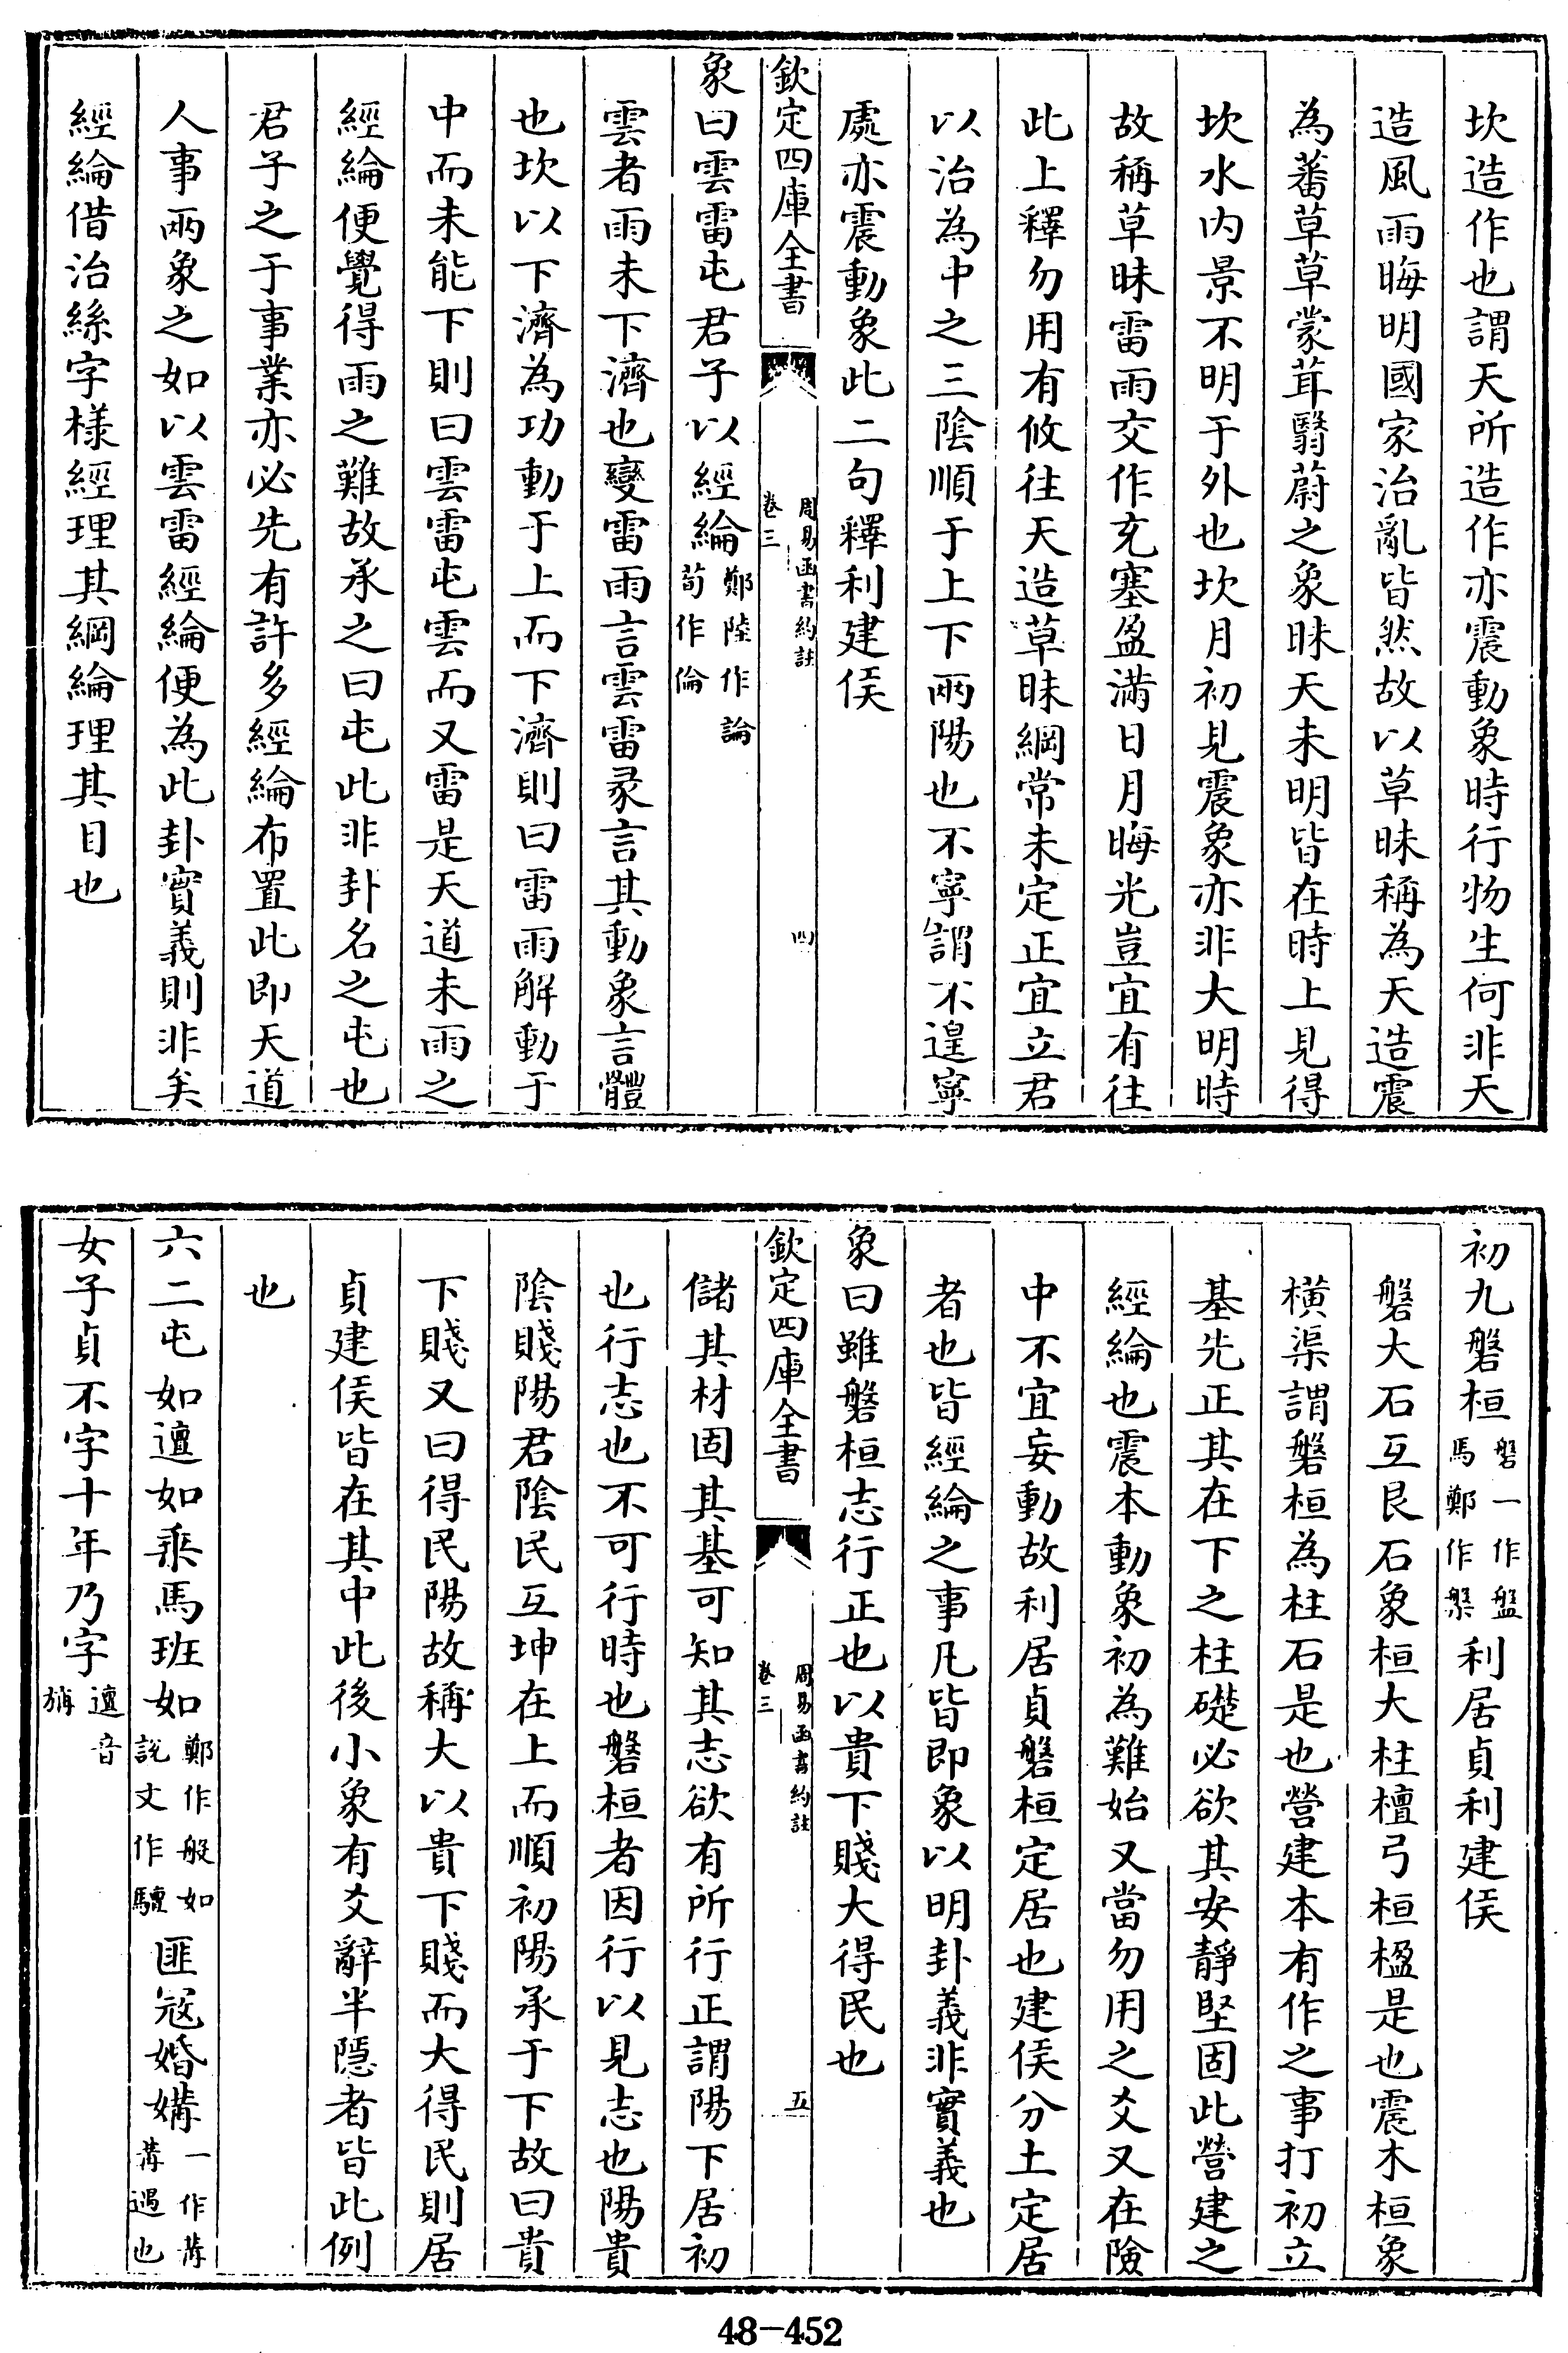 坎造作也謂天所造作亦震動象時行物生何非天
造風雨晦明國家治亂皆然故以草昧稱為天造震
為蕃草草蒙茸翳蔚之象昧天未明皆在時上見得
坎水内景不明于外也坎月初見震象亦非大明時
故稱草昧雷雨交作充塞盈滿日月晦光豈宜有往
此上釋勿用有攸往天造草昧綱常未定正宜立君
以治為中之三陰順于上下兩陽也不寧謂不遑寧
處亦震動象此二句釋利建侯
欽定四庫全書
周易函書約註
卷三
四
象曰雲雷屯君子以經綸鄭陸作論荀作倫
雲者雨未下濟也變雷雨言雲雷彖言其動象言體
也坎以下濟為功動于上而下濟則曰雷雨解動于
中而未能下則曰雲雷屯雲而又雷是天道未雨之
經綸便覺得雨之難故承之曰屯此非卦名之屯也
君子之于事業亦必先有許多經綸布置此即天道
人事兩象之如以雲雷經綸便為此卦實義則非矣
經綸借治絲字樣經理其綱綸理其目也
初九磐桓磐一作盤馬鄭作槃利居貞利建侯
磐大石互艮石象桓大柱檀弓桓楹是也震木桓象
橫渠謂磐桓為柱石是也營建本有作之事打初立
基先正其在下之柱礎必欲其安靜堅固此營建之
經綸也震本動象初為難始又當勿用之爻又在險
中不宜妄動故利居貞磐桓定居也建侯分土定居
者也皆經綸之事凡皆即象以明卦義非實義也
象曰雖磐桓志行正也以貴下賤大得民也
欽定四庫全書
周易函書約註
卷三
五
儲其材固其基可知其志欲有所行正謂陽下居初
也行志也不可行時也磐桓者因行以見志也陽貴
陰賤陽君陰民互坤在上而順初陽承于下故曰貴
下賤又曰得民陽故稱大以貴下賤而大得民則居
貞建侯皆在其中此後小象有爻辭半隱者皆此例
也
六二屯如邅如乘馬班如鄭作般如說文作驙匪寇婚媾一作冓冓遇也
女子貞不字十年乃字邅音旃
48-452